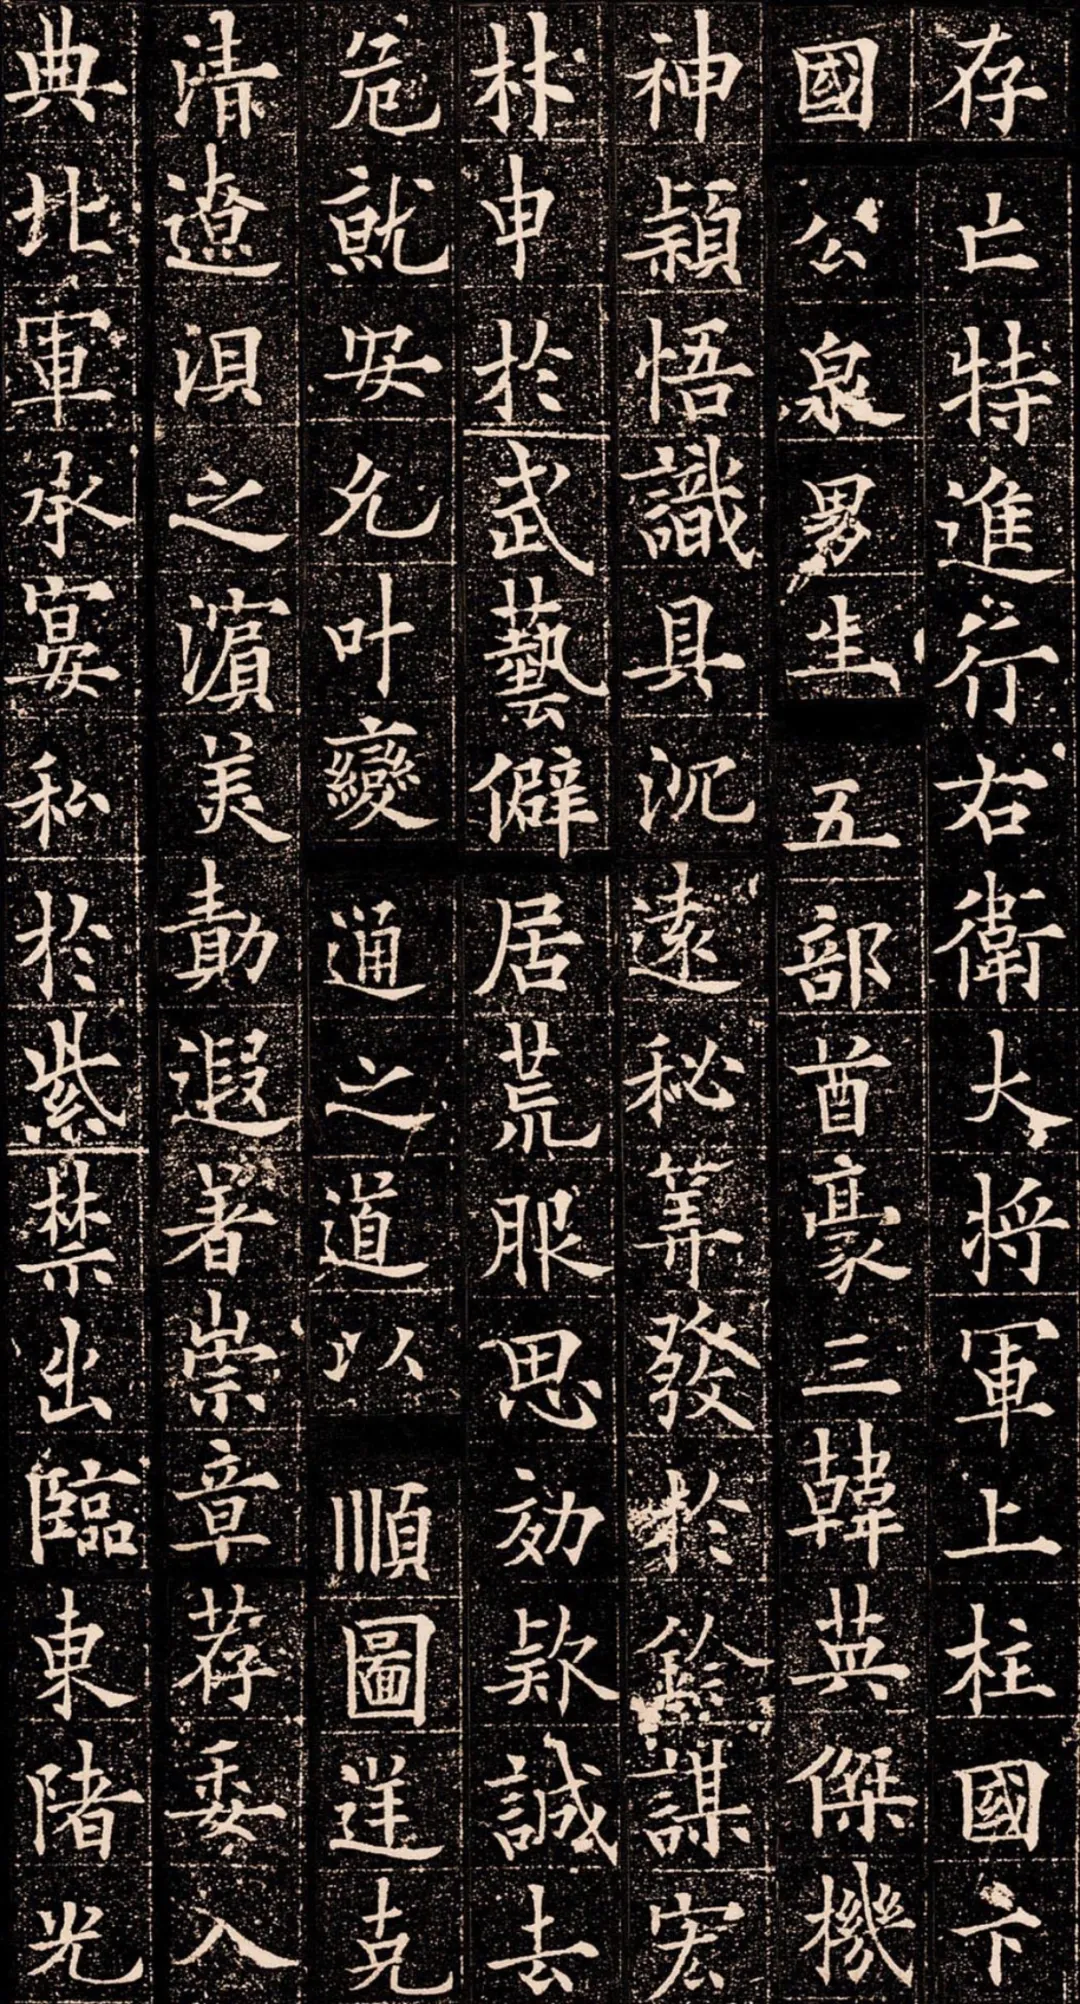 存亡特進行右衛大將軍上柱國卞
國公泉男生五部酋豪三韓英傑機
神穎悟識具沉遠秘筭發於鈐謀宏
材申於武藝僻居荒服思効款誠去
危就安允叶變通之道以順圖逆克
清遼浿之濱美勳遐著崇章荐委入
典北軍承宴私於紫禁出臨東陼光